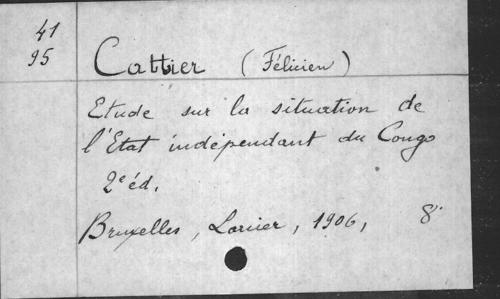 41
95
Cattier (Félicien)
Etude sur la situation de
l'Etat indépendant du Congo
2e éd.
Bruxelles, Larcier, 1906, 8°